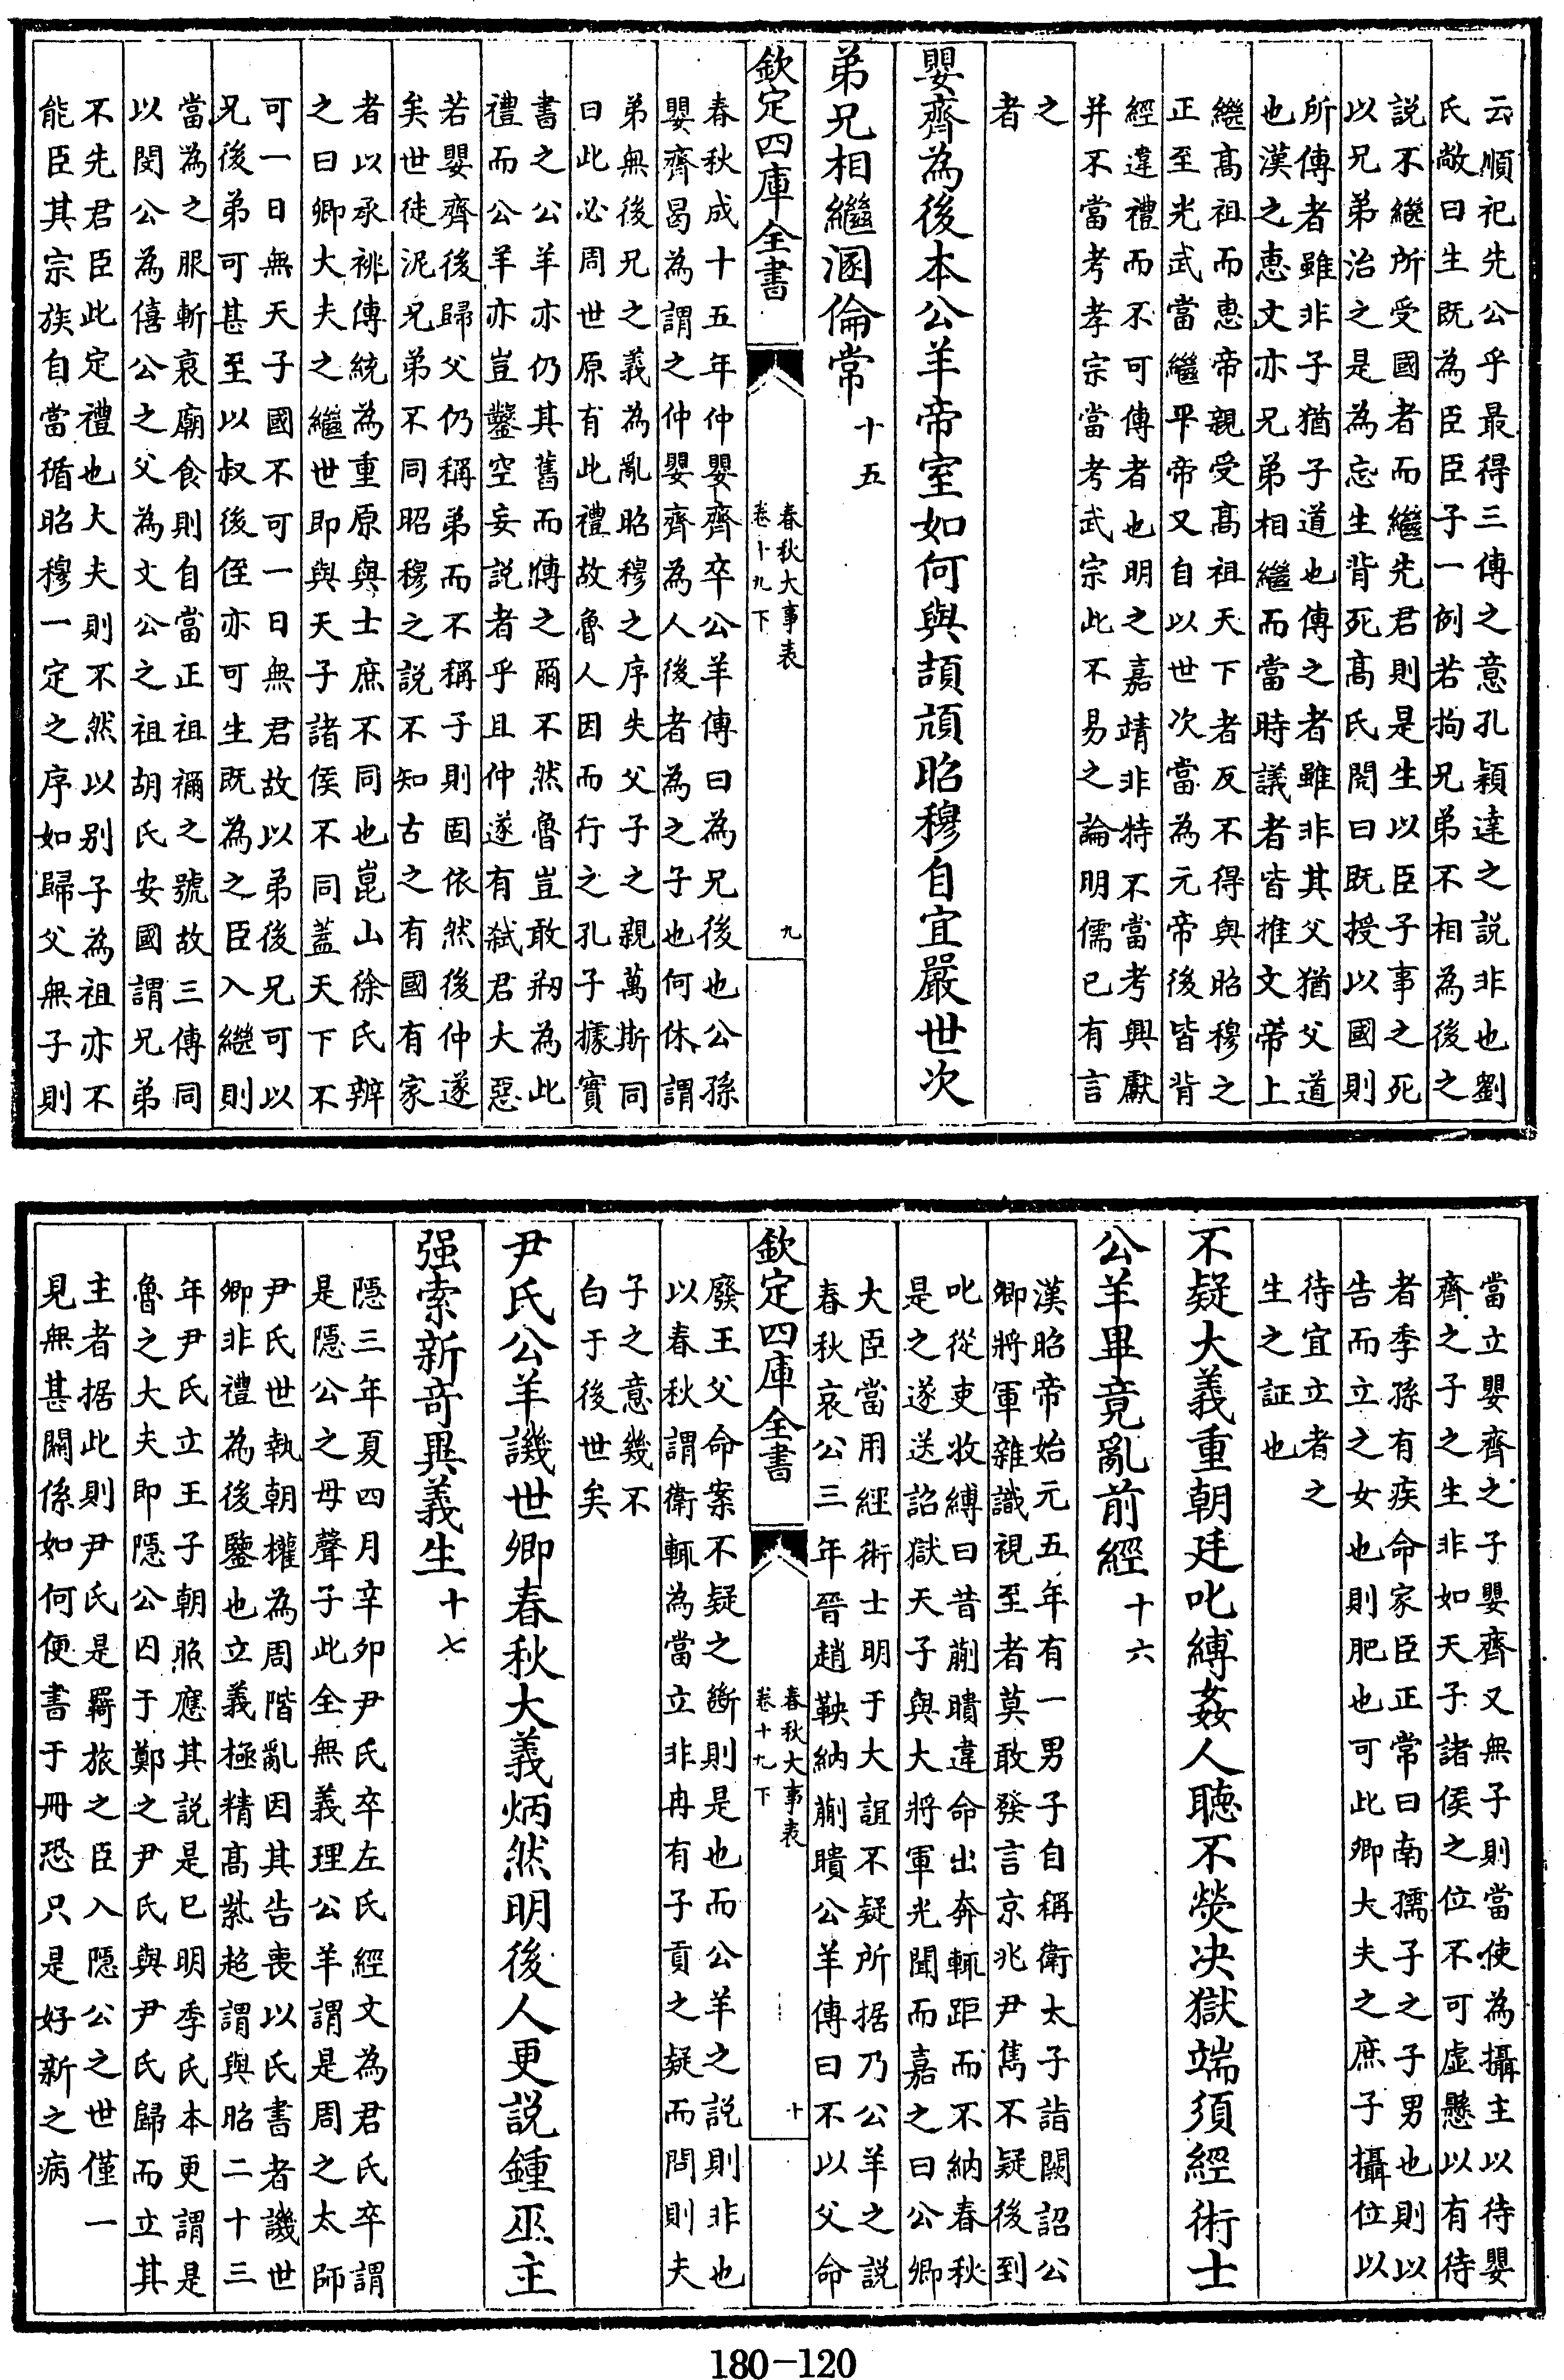 云順祀先公乎最得三傳之意孔穎達之説非也劉
氏敞曰生既為臣臣子一例若拘兄弟不相為後之
説不繼所受國者而繼先君則是生以臣子事之死
以兄弟治之是為忘生背死髙氏閌曰既授以國則
所傳者雖非子猶子道也傳之者雖非其父猶父道
也漢之惠文亦兄弟相繼而當時議者皆推文帝上
繼髙祖而惠帝親受髙祖天下者反不得與昭穆之
正至光武當繼平帝又自以世次當為元帝後皆背
經違禮而不可傳者也明之嘉靖非特不當考興獻
并不當考孝宗當考武宗此不易之論明儒已有言
之
者
嬰齊為後本公羊帝室如何與頡頏昭穆自宜嚴世次
弟兄相繼溷倫常十五
欽定四庫全書
春秋大事表
卷十九下
九
春秋成十五年仲嬰齊卒公羊傳曰為兄後也公孫
嬰齊曷為謂之仲嬰齊為人後者為之子也何休謂
弟無後兄之義為亂昭穆之序失父子之親萬斯同
曰此必周世原有此禮故魯人因而行之孔子據實
書之公羊亦仍其舊而傳之爾不然魯豈敢剏為此
禮而公羊亦豈鑿空妄説者乎且仲遂有弑君大惡
若嬰齊後歸父仍稱弟而不稱子則固依然後仲遂
矣世徒泥兄弟不同昭穆之説不知古之有國有家
者以承祧傳統為重原與士庶不同也崑山徐氏辨
之曰卿大夫之繼世即與天子諸侯不同蓋天下不
可一日無天子國不可一日無君故以弟後兄可以
兄後弟可甚至以叔後侄亦可生既為之臣入繼則
當為之服斬衰廟食則自當正祖禰之號故三傳同
以閔公為僖公之父為文公之祖胡氏安國謂兄弟
不先君臣此定禮也大夫則不然以别子為祖亦不
能臣其宗族自當循昭穆一定之序如歸父無子則
當立嬰齊之子嬰齊又無子則當使為攝主以待嬰
齊之子之生非如天子諸侯之位不可虚懸以有待
者季孫有疾命家臣正常曰南孺子之子男也則以
告而立之女也則肥也可此卿大夫之庶子攝位以
待宜立者之
生之証也
不疑大義重朝廷叱縛姦人聴不熒决獄端須經術士
公羊畢竟亂前經十六
漢昭帝始元五年有一男子自稱衛太子詣闕詔公
卿將軍雜識視至者莫敢發言京兆尹雋不疑後到
叱從吏收縛曰昔蒯聵違命出奔輒距而不納春秋
是之遂送詔獄天子與大將軍光聞而嘉之曰公卿
大臣當用經術士明于大誼不疑所据乃公羊之説
春秋哀公三年晉趙鞅納蒯聵公羊傳曰不以父命
欽定四庫全書
春秋大事表
卷十九下
十
廢王父命案不疑之斷則是也而公羊之説則非也
以春秋謂衛輒為當立非冉有子貢之疑而問則夫
子之意幾不
白于後世矣
尹氏公羊譏世卿春秋大義炳然明後人更説鍾巫主
强索新奇異義生十七
隠三年夏四月辛卯尹氏卒左氏經文為君氏卒謂
是隠公之母聲子此全無義理公羊謂是周之太師
尹氏世執朝權為周階亂因其告喪以氏書者譏世
卿非禮為後鑒也立義極精髙紫超謂與昭二十三
年尹氏立王子朝照應其説是已明季氏本更謂是
魯之大夫即隠公囚于鄭之尹氏與尹氏歸而立其
主者据此則尹氏是羇旅之臣入隠公之世僅一
見無甚關係如何便書于冊恐只是好新之病
180-120